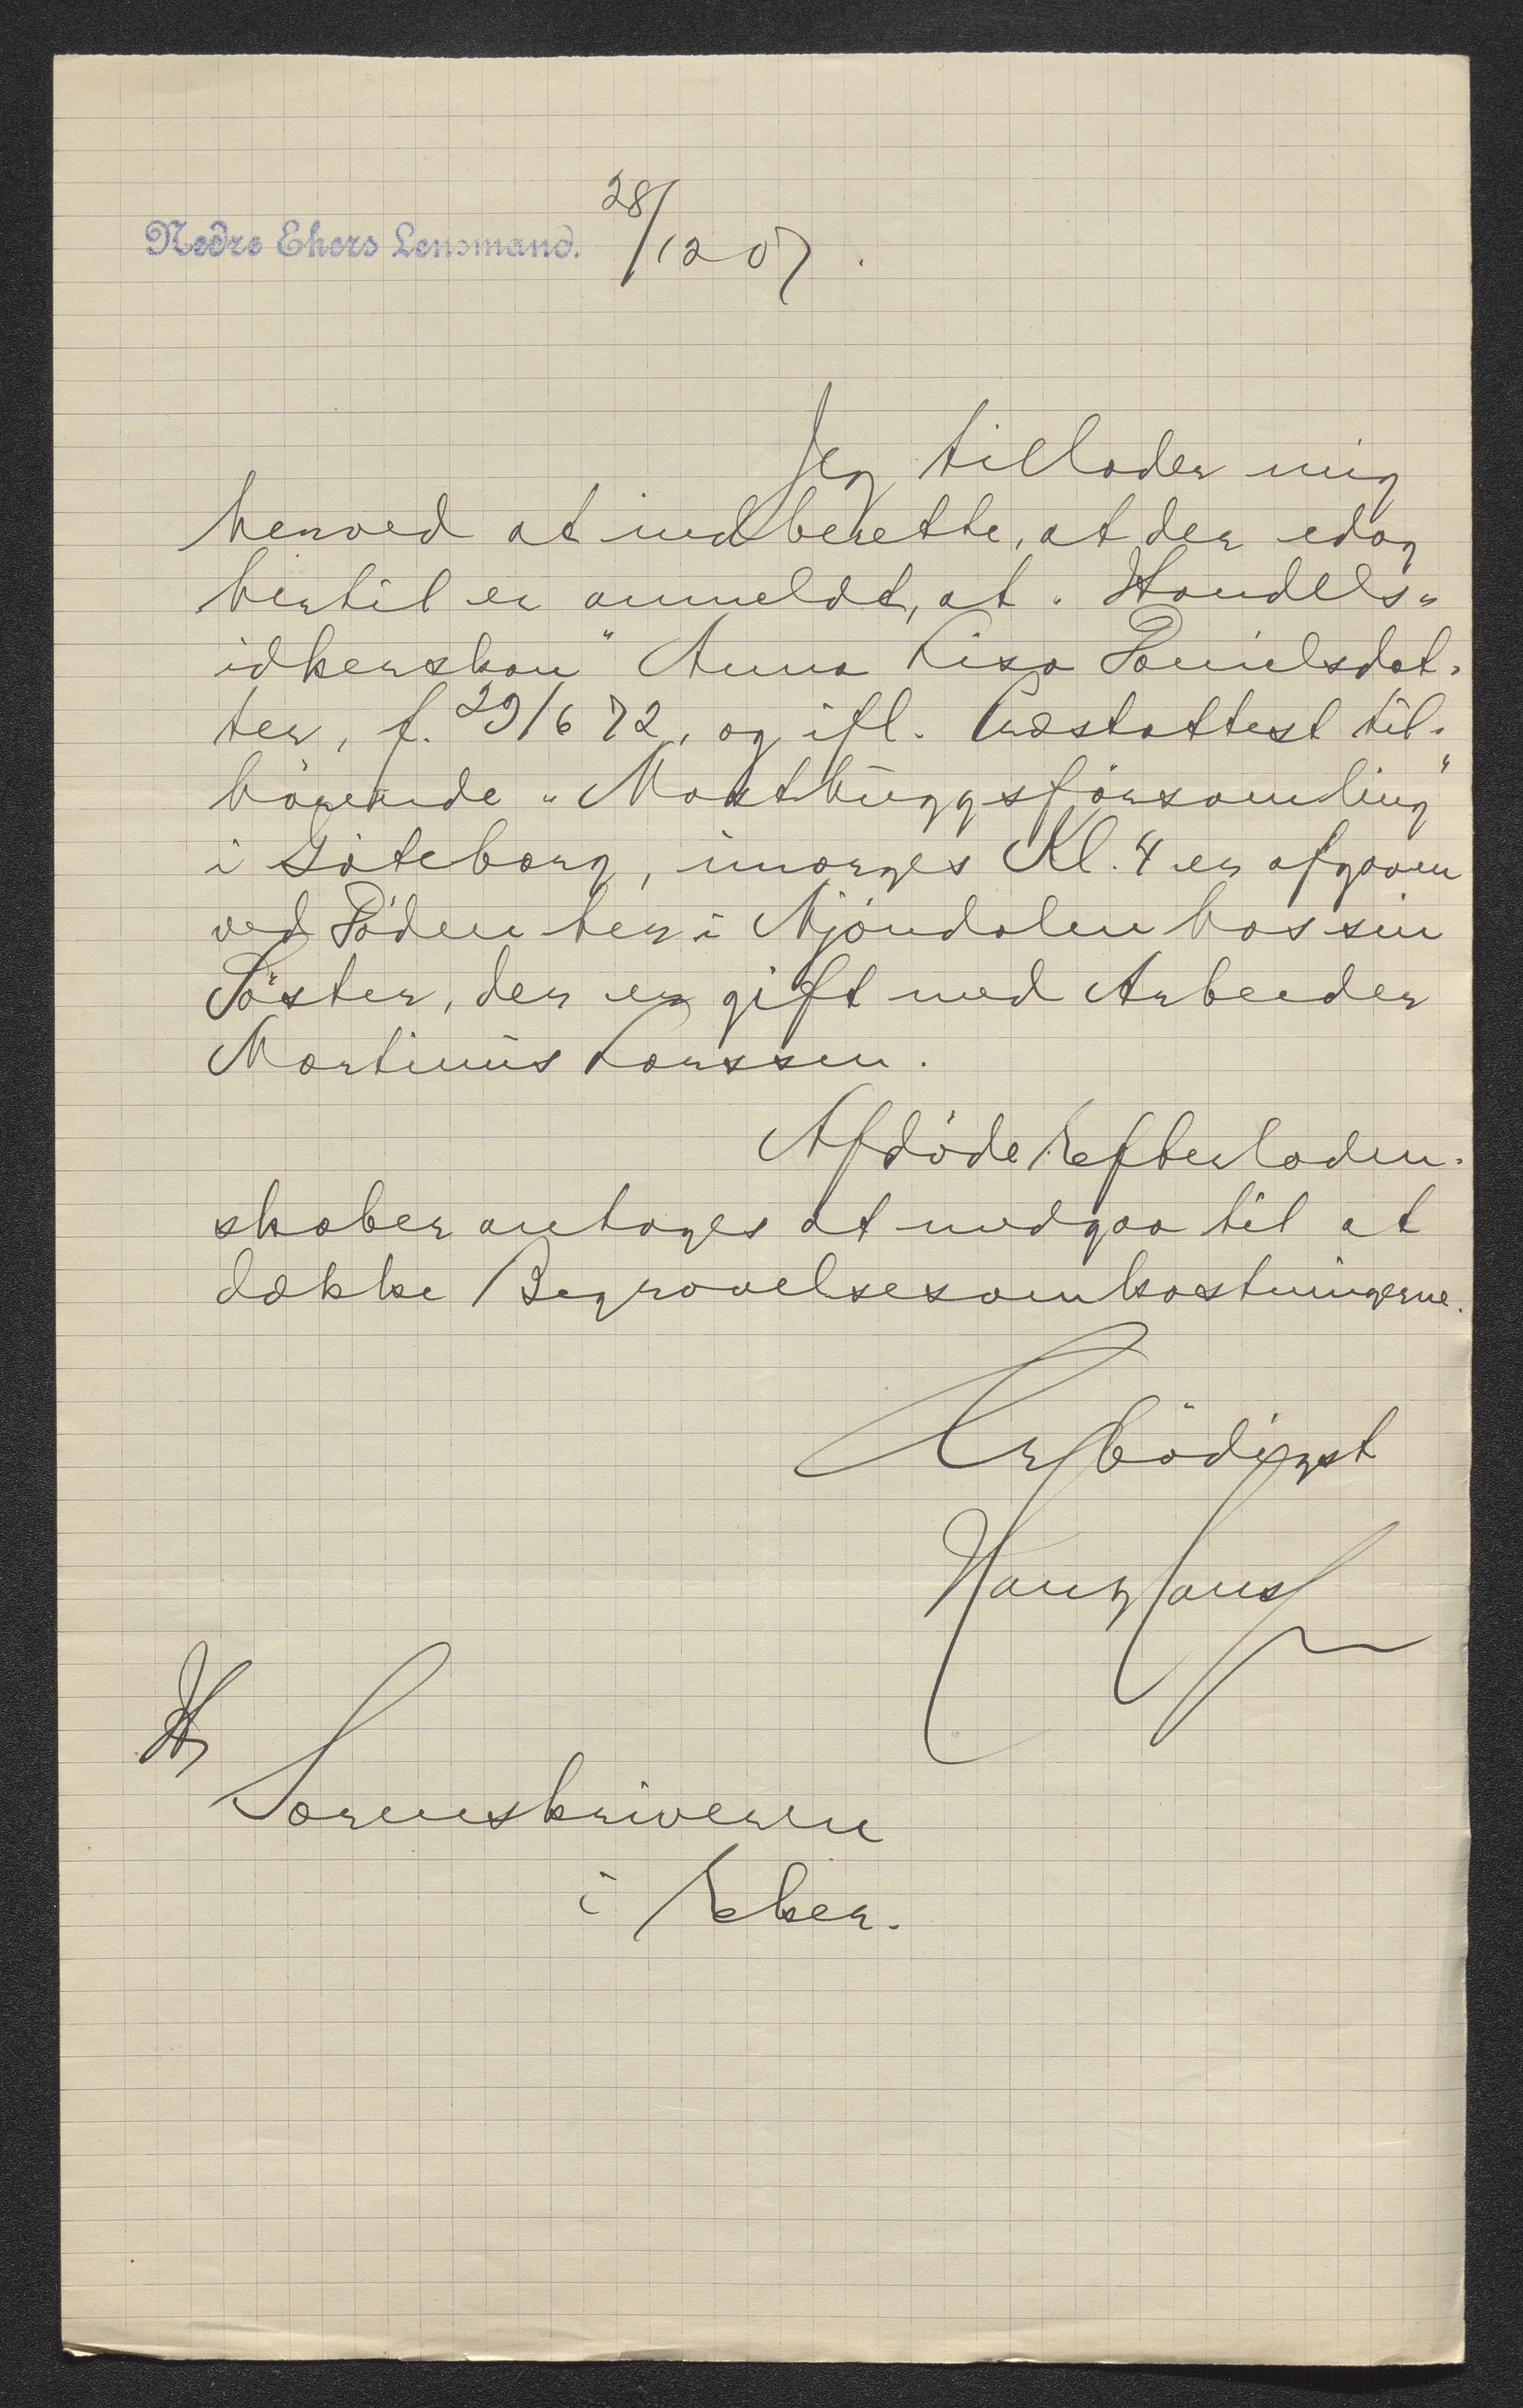 Nedre Ekers Lensmand. 28/12 07.
Jeg tillader mig
herved at indberette, at der idag
hertil er anmeldt, at "Handels-
idkerskan" Anna Lisa Danielsdat-
ter, f. 29/6 72, og ifl. Præstattest til-
hörende "Masthuggsförsamling"
i Göteborg, imorges Kl. 4 er afgaaen
ved Döden her i Mjöndalen hos sin
Söster, der er gift med Arbeider
Martinius Larssen.
Afdödes Efterladen-
skaber antages at medgaa til at
dække Begravelsesomkostningerne.
Ærbödigst
Hr
Sorenskriveren
i Eker.